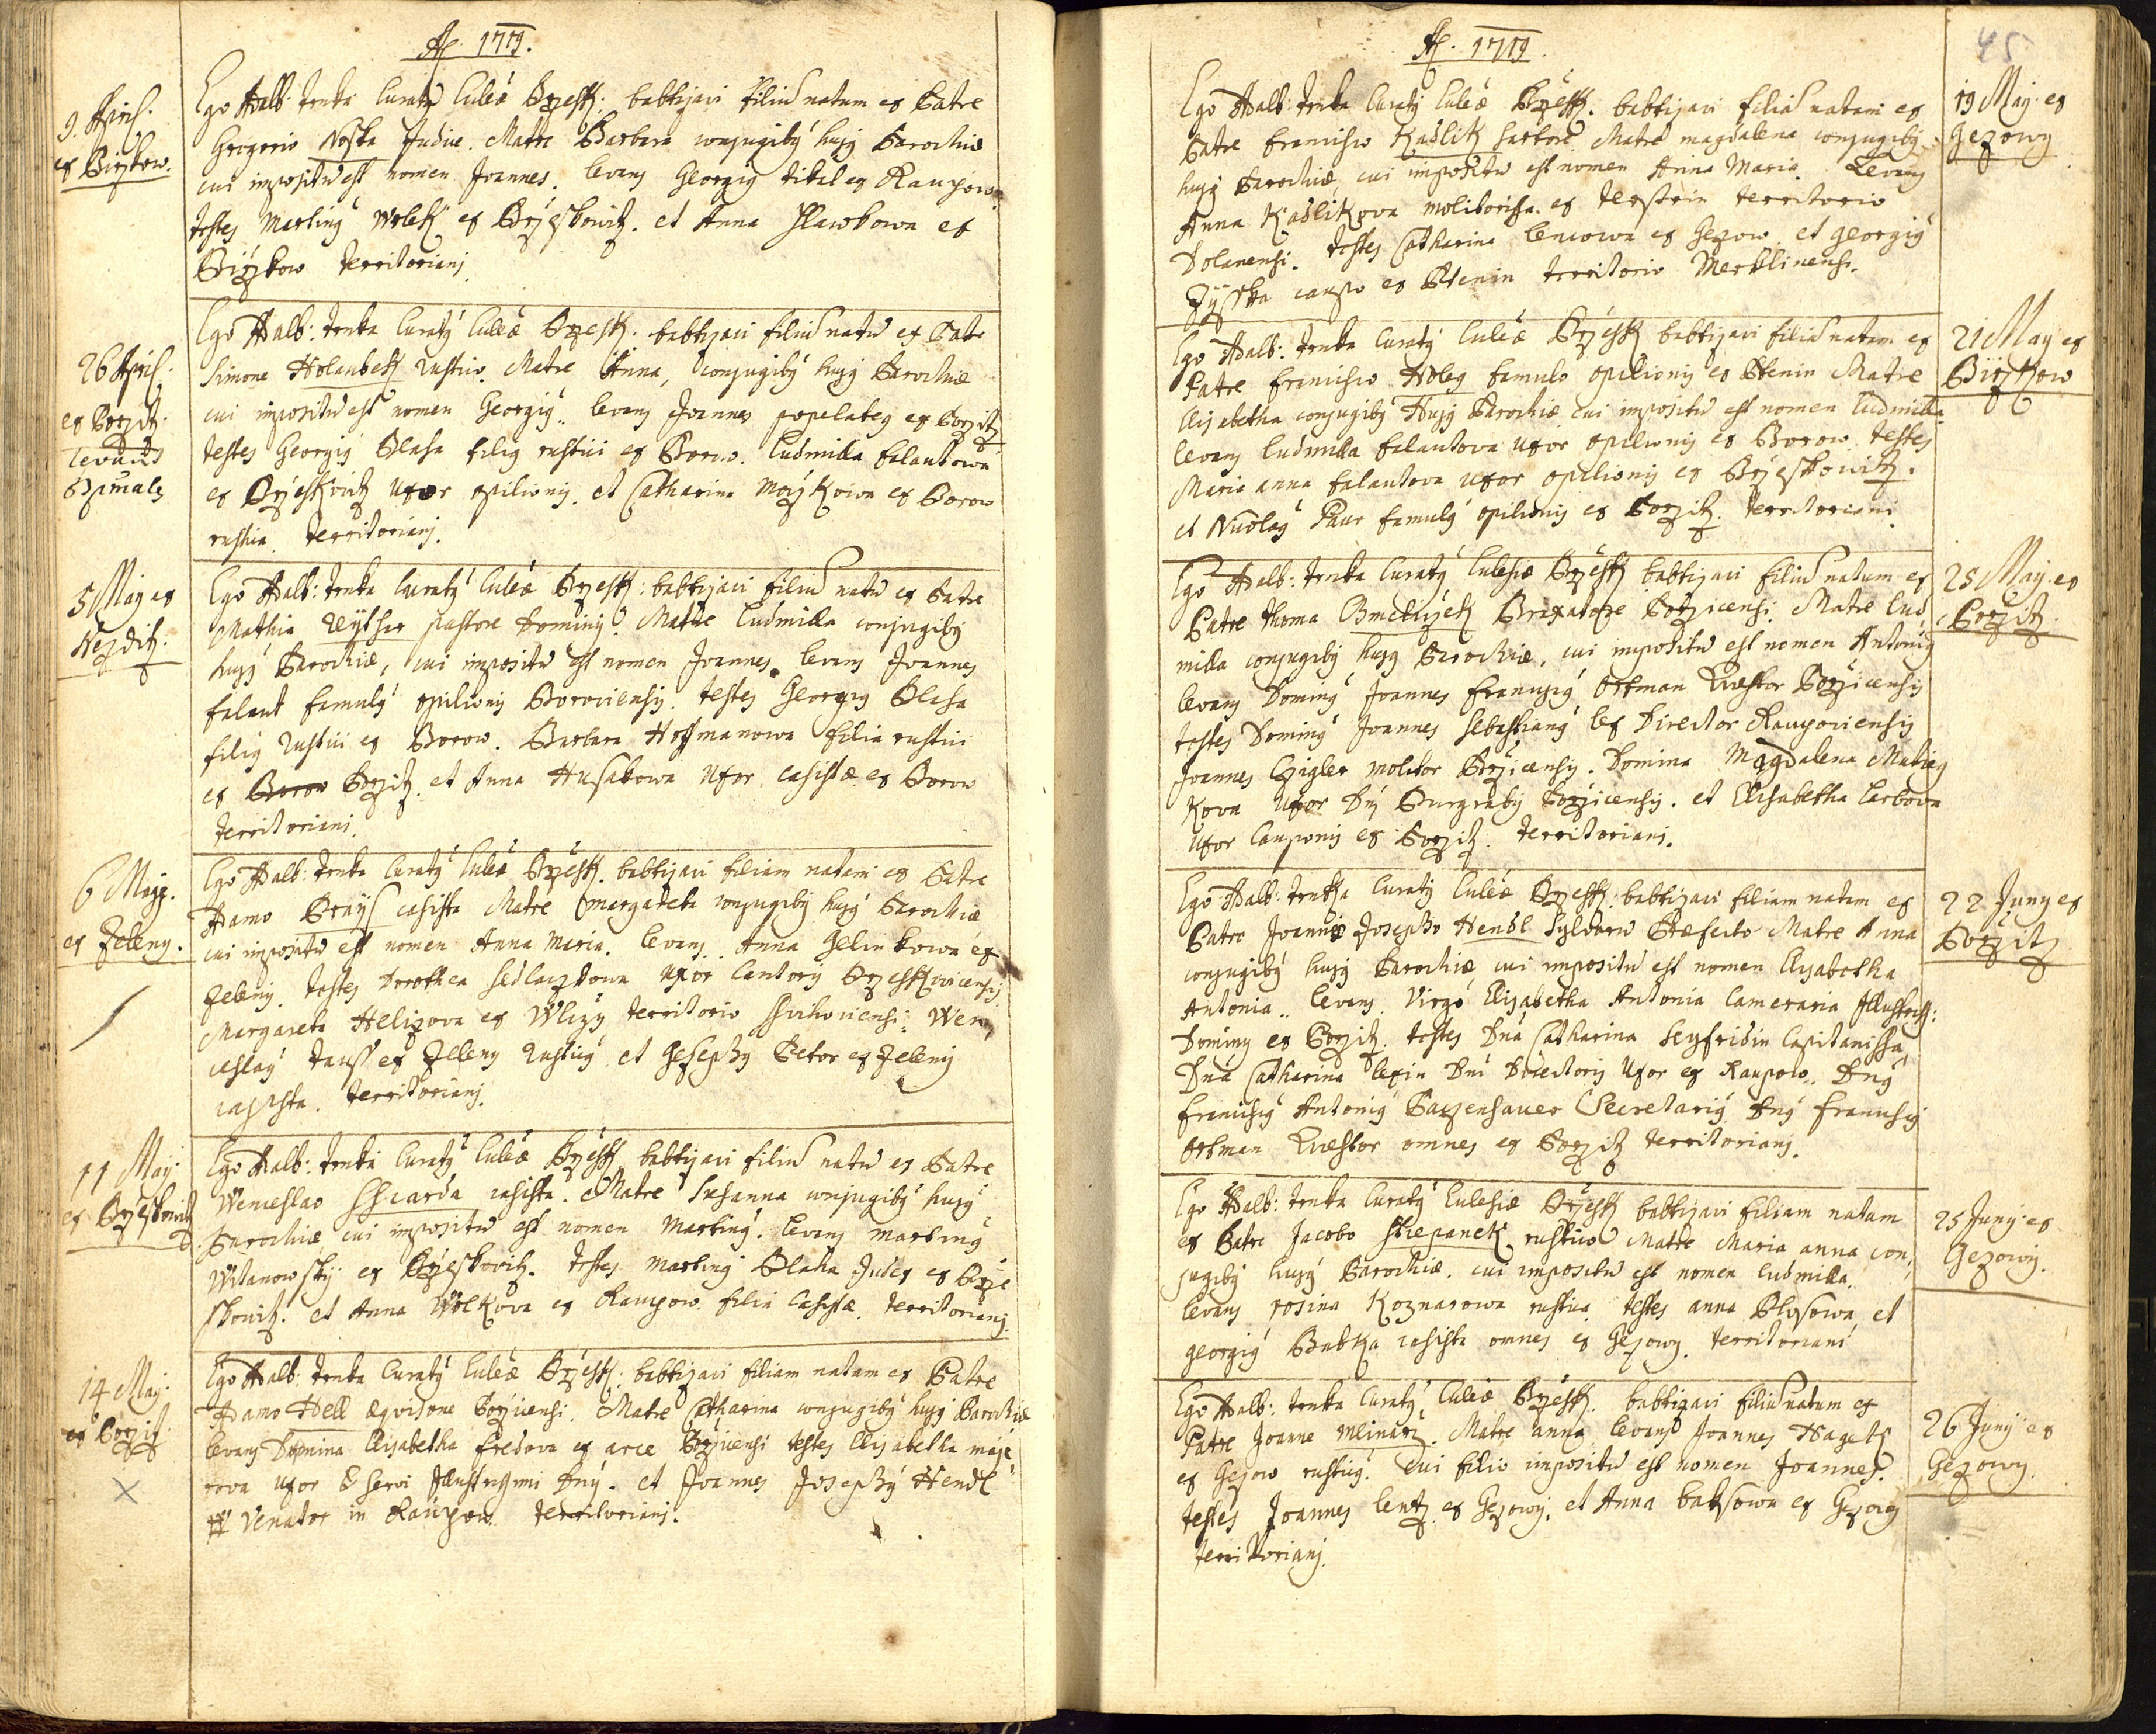 A 1719.
9. April.
ex Birzkow.
Ego Adalb: Trnka Curatus Eccleæ Brzesk: babtizavi filiu natum ex Patre
Gregorio Noska Judice. Matre Barbara conjugibus hujus Parochiæ
cui impositu est nomen Joannes. levans Georgius Tikal ex Raupow
testes Martinus Wolek ex Brzeskowitz. et Anna Slawkowa ex
Birzkow Territoriani.
26 April.
ex Borzitz.
levans
Ego Adalb: Trnka Curatus Eccleæ Brzesk: babtizavi filiu natu ex Patre
Simone Holaubek rustico. Matre Anna, conjugibus hujus Parochiæ
cui impositu est nomen Georgius. levans Joannes popelaty ex Borzitz
testes Georgius Blaha filius rustici ex Borow. Ludmilla falautowa
ex Brzeskowitz uxor opilionis. et Catharina ex Borow
rustica Territoriani.
5 May ex
Nezditz.
Ego Adalb: Trnka Curatus Eccleæ Brzesk: babtizavi filiu natu ex Patre
Mathia pastore Matre Ludmilla conjugibus
hujus Parochiæ, cui impositu est nomen Joannes. levans Joannes
falaut famulus opilionis Borowiensis. testes Georgius Blaha
filius rustici ex Borow. Barbara Hofmanowa filia rustici
ex Borow Borzitz. et Anna Husakowa uxor casistæ ex Borow
Territoriani.
6 Maji.
ex Zeleny.
Ego Adalb: Trnka Curatus Eccleæ Brzesk. babtizavi filiam natam ex Patre
Adamo casista Matre margareta conjugibus hujus Parochiæ
cui impositu est nomen Anna Maria. levans Anna Gelinkowa ex
Zeleny. testes Dorothea Sedlaczkowa uxor Cantoris Brzeskovicensis
Margareta Helizova ex Wlczy territorio Shvihoviensi. Wen
ceslaus Tauss ex Zeleny rusticus et Gesephus Petor ex Zeleny
casista. Territoriani.
11 May.
ex Brzeskowitz
Ego Adalb: Trnka Curatus Eccleæ Brzesk babtizavi filiu natu ex Patre
Wenceslao casista. Matre Susanna conjugibus hujus
Parochiæ cui impositu est nomen Martinus. levans martinus
Witanowsky ex Brzeskovitz. testes martinus Blaha Judex ex Brze
skowitz. et Anna Wolkova ex Raupow filia casistæ. Territoriani.
14 May.
ex Borzitz
Ego Adalb: Trnka Curatus Eccleæ Brzesk: babtizavi filiam natam ex Patre
Adamo Hell Borzicensi. Matre Catharina conjugibus hujus Parochiæ
levans Domina Elisabetha fredova ex arce Borzicensi testes Elisabetha maje
rova uxor servi Illustrissimi Dni. et Joannes Josephus Hendl
Venator in Raupow Territoriani.
A. 1719
45
19 May ex
Gezowy
Ego Adalb: Trnka Curatus Eccleæ Brzesk. babtizavi filia natam ex
Patre Francisco Kadlik sartore. Matre magdalena conjugibus
hujus Parochiæ cui impositu est nomen Anna Maria. Levans
Anna Kadlikova molitorissa ex territorio
Dolanensi. testes Catharina lencowa ex Gezow. et georgius
Zysska caupo ex Ptenin territorio Merklinensi.
21 May ex
Birzkow
Ego Adalb: Trnka Curatus Eccleæ Brzesk babtizavi filia natam ex
Patre francisco Holey famulo opilionis ex Ptenin Matre
Elisabetha conjugibus Hujus Parochiæ cui impositu est nomen Ludmilla
levans Ludmilla falautova uxor opilionis ex Borow. testes
Maria anna falautova uxor opilionis ex Brzeskowitz.
et Nicolaus Paur famulus opilionis ex Borzitz. Territoriani.
25 May ex
Borzitz.
Ego Adalb: Trnka Curatus Ecclesiæ Brzesk babtizavi filiu natum ex
Patre Thoma Braxatore Borzicensi. Matre Lud
milla conjugibus hujus Parochiæ, cui impositu est nomen Antonius
levans Dominus Joannes Franciscus Ortman Quæstor Borzicensis
testes Dominus Joannes Sebastianus lex Director Raupoviensis
Joannes Czigler molitor Borzicensis. Domina Magdalena
kova uxor Dni Burgrabij Borzicensis. et Elisabetha Carbova
uxor Cauponis ex Borzitz. Territoriani.
22 Juny ex
Borzitz
Ego Adalb: Trnka Curatus Eccleæ Brzesk: babtizavi filiam natam ex
Patre Joannis Josepho Hendl Sylvaru Præfecto Matre Anna
conjugibus hujus Parochiæ cui impositu est nomen Elisabetha
Antonia. levans Virgo Elisabetha Antonia Cameraria Illustriss:
Dominy ex Borzitz. testes Dna Catharina Seyfridin Capitanissa
Dna Catharina lexin Dni Directoris uxor ex Raupow. Dnus
franciscus Antonius Patzensauer Secretarius Dnus franciscus
Ortman Quæstor omnes ex Borzitz Territoriani.
25 Juny ex
Gezowy.
Ego Adalb: Trnka Curatus Ecclesiæ Brzesk babtizavi filiam natam
ex Patre Jacobo Stiepanek rustico Matre Maria anna con
jugibus hujus Parochiæ. cui impositu est nomen Ludmilla.
levans rosina Koznarowa rustica testes anna et
georgius Bubka casista omnes ex Gezowy. Territoriani
26 Juny ex
Gezowy.
Ego Adalb: Trnka Curatus Eccleæ Brzesk. babtizavi filiu natum ex
Patre Joanne Mlinarz. Matre anna levans Joannes Hagek
ex Gezow rusticus. Cui filio impositu est nomen Joannes.
testes Joannes lentz ex Gezowy. et Anna ex Gezowy
Territoriani.